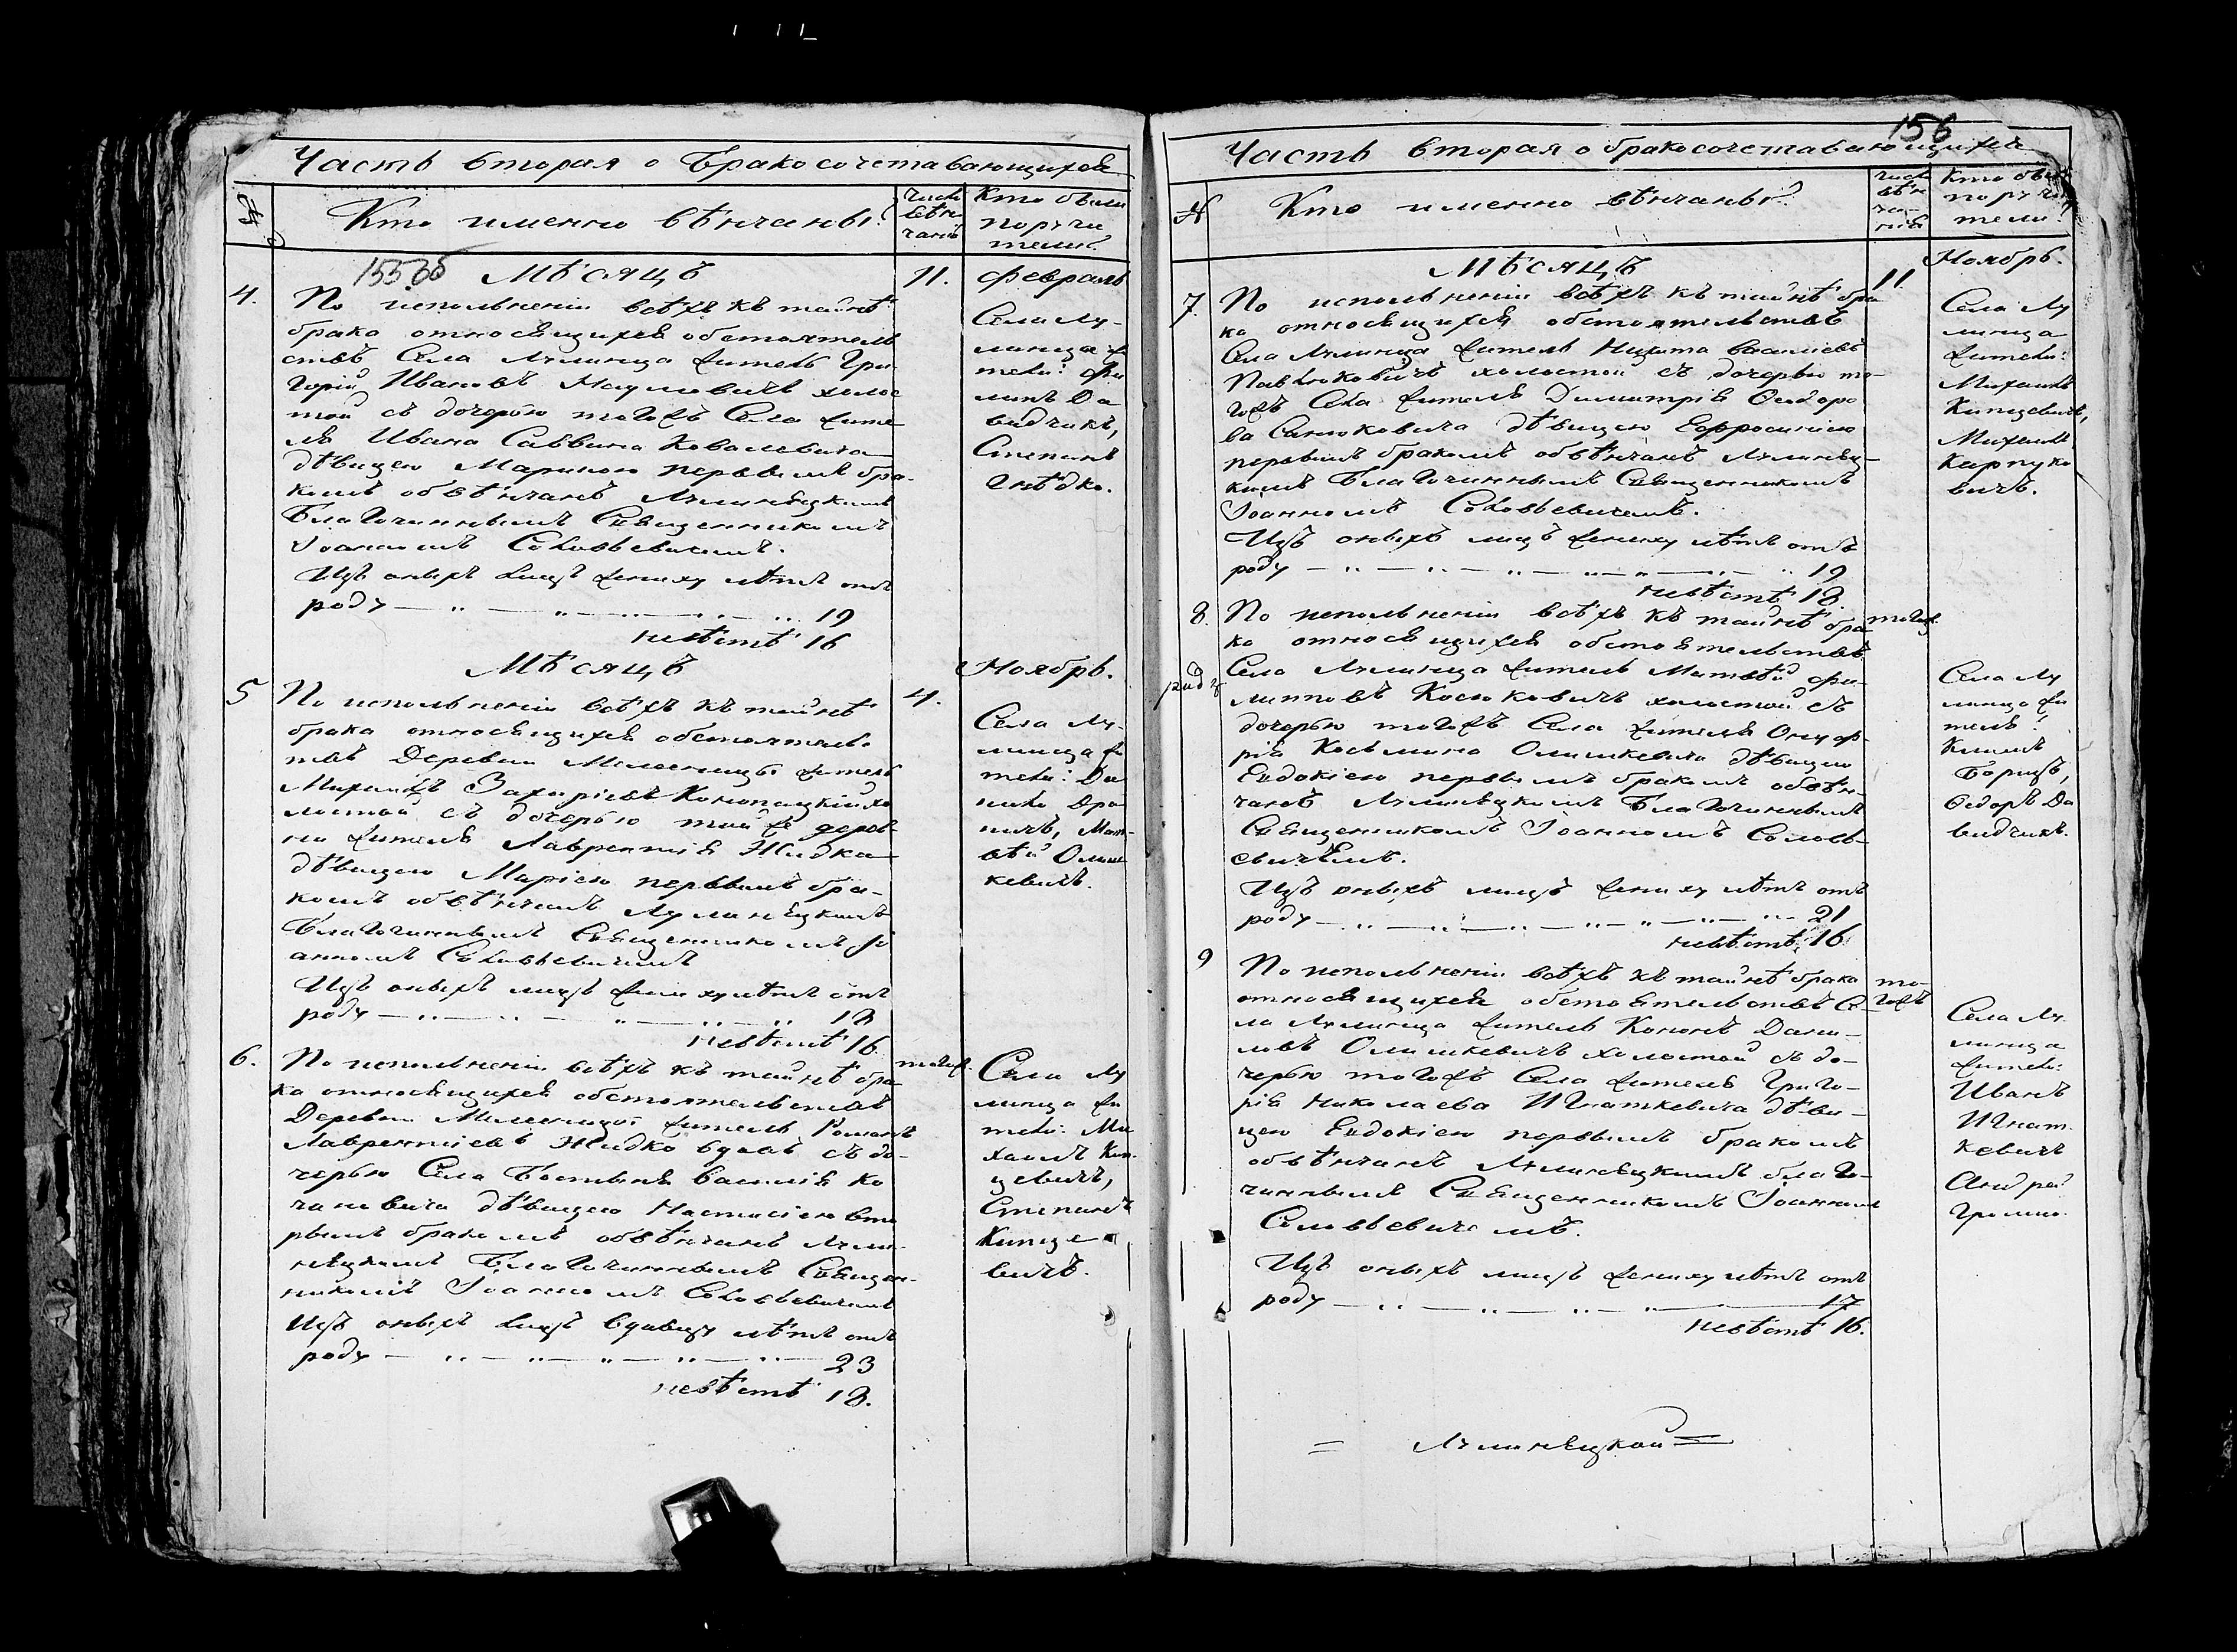 Часть вторая о бракосочетавающихся
№
Кто именно вѣнчаны?
число
вѣн
чанія
Кто были
поручи
тели?
155об
Мѣсяцъ
11.
февраль
4.
По исполненіи всѣхъ къ тайнѣ
брака относящихся обстоятель
ствъ Села Лулинца житель Гри
горій Ивановъ Наумовичъ холос
той съ дочерью тогожъ Села жите
ля Ивана Саввина Ковалевича
дѣвицею Мариною первымъ бра-
комъ обвѣнчанъ Лулинецкимъ
Благочиннымъ Священникомъ
Іоанномъ Соловьевичемъ.
Изъ оныхъ лицъ жениху лѣтъ отъ
роду 19
невѣстѣ 16
Села Лу-
линца жи
тели: Фи
липъ Да
видчикъ,
Степанъ
Гнѣдко.
Мѣсяцъ
Ноябрь.
5
4.
По исполненіи всѣхъ къ тайнѣ
брака относящихся обстоятельс
твъ Деревни Мелесницы житель
Михаилъ Захаріевъ Конопацкій хо
лостой съ дочерью той же дерев-
ни жителя Лаврентія Жидка
дѣвицею Маріею первымъ бра-
комъ обвѣнчанъ Лулинецкимъ
Благочиннымъ Священникомъ Іо
анномъ Соловьевичемъ
Изъ оныхъ лицъ жениху лѣтъ отъ
роду 18
невѣстѣ 16
Села Лу-
линца жи
тели: Да
нило Дра
ничъ, Мат-
вѣй Олиш
кевичъ.
6.
тогож.
По исполненіи всѣхъ къ тайнѣ бра
ка относящихся обстоятельствъ
Деревни Мелесницы житель Романъ
Лаврентіевъ Жидко вдовъ съ до-
черью Села Бостыня Василія Ко
чановича дѣвицею Настасіею вто
рымъ бракомъ обвѣнчанъ Лули-
нецкимъ Благочиннымъ Священ-
никомъ Іоанномъ Соловьевичемъ
Изъ оныхъ лицъ вдовцу лѣтъ отъ
роду 23
невѣстѣ 18.
Села Лу
линца жи
тели: Ми
хаилъ Кин
цевичъ,
Степанъ
Кинце
вичъ.
156
Часть вторая о бракосочетавающихся
№
Кто именно вѣнчаны?
число
вѣн
ча-
нія
Кто были
поручи
тели?
Мѣсяцъ
11
Ноябрь.
7.
По исполненіи всѣхъ къ тайнѣ бра
ка относящихся обстоятельствъ
Села Лулинца житель Никита Василіевъ
Павлюковичъ холостой съ дочерью то-
гожъ Села жителя Димитрія Ѳеодоро
ва Санюковича дѣвицею Ефросиніею
первымъ бракомъ обвѣнчанъ Лулинец-
кимъ Благочиннымъ Священникомъ
Іоанномъ Соловьевичемъ.
Изъ оныхъ лицъ жениху лѣтъ отъ
роду 19
невѣстѣ 18.
Села Лу
линца
жители:
Михаилъ
Кинцевичъ,
Михаилъ
Карпуко
вичъ.
8.
тогож.
По исполненіи всѣхъ къ тайнѣ бра
ка относящихся обстоятельствъ
Села Лулинца житель Матвѣй Фи-
липповъ Косюковичъ холостой съ
дочерью тогожъ Села жителя Онуф-
рія Косьмина Олишкевича дѣвицею
Евдокіею первымъ бракомъ обвѣн-
чанъ Лулинецкимъ Благочиннымъ
Священникомъ Іоанномъ Соловь-
евичемъ.
Изъ оныхъ лицъ жениху лѣтъ отъ
роду 21
невѣстѣ 16
Села Лу
линца жи
тели:
Климъ
Борицъ,
Ѳедоръ Да
видчикъ.
9
то-
гожъ
По исполненіи всѣхъ къ тайнѣ брака
относящихся обстоятельствъ Се-
ла Лулинца житель Кононъ Дани-
ловъ Олишкевичъ холостой съ до-
черью тогожъ Села жителя Григо-
рія Николаева Игнаткевича дѣви-
цею Евдокіею первымъ бракомъ
обвѣнчанъ Лулинецкимъ благо-
чиннымъ Священникомъ Іоанномъ
Соловьевичемъ.
Изъ оныхъ лицъ жениху лѣтъ отъ
роду 17
невѣстѣ 16.
Села Лу-
линца
жители:
Иванъ
Игнат-
кевичъ
Андрей
= Лулинецкой =